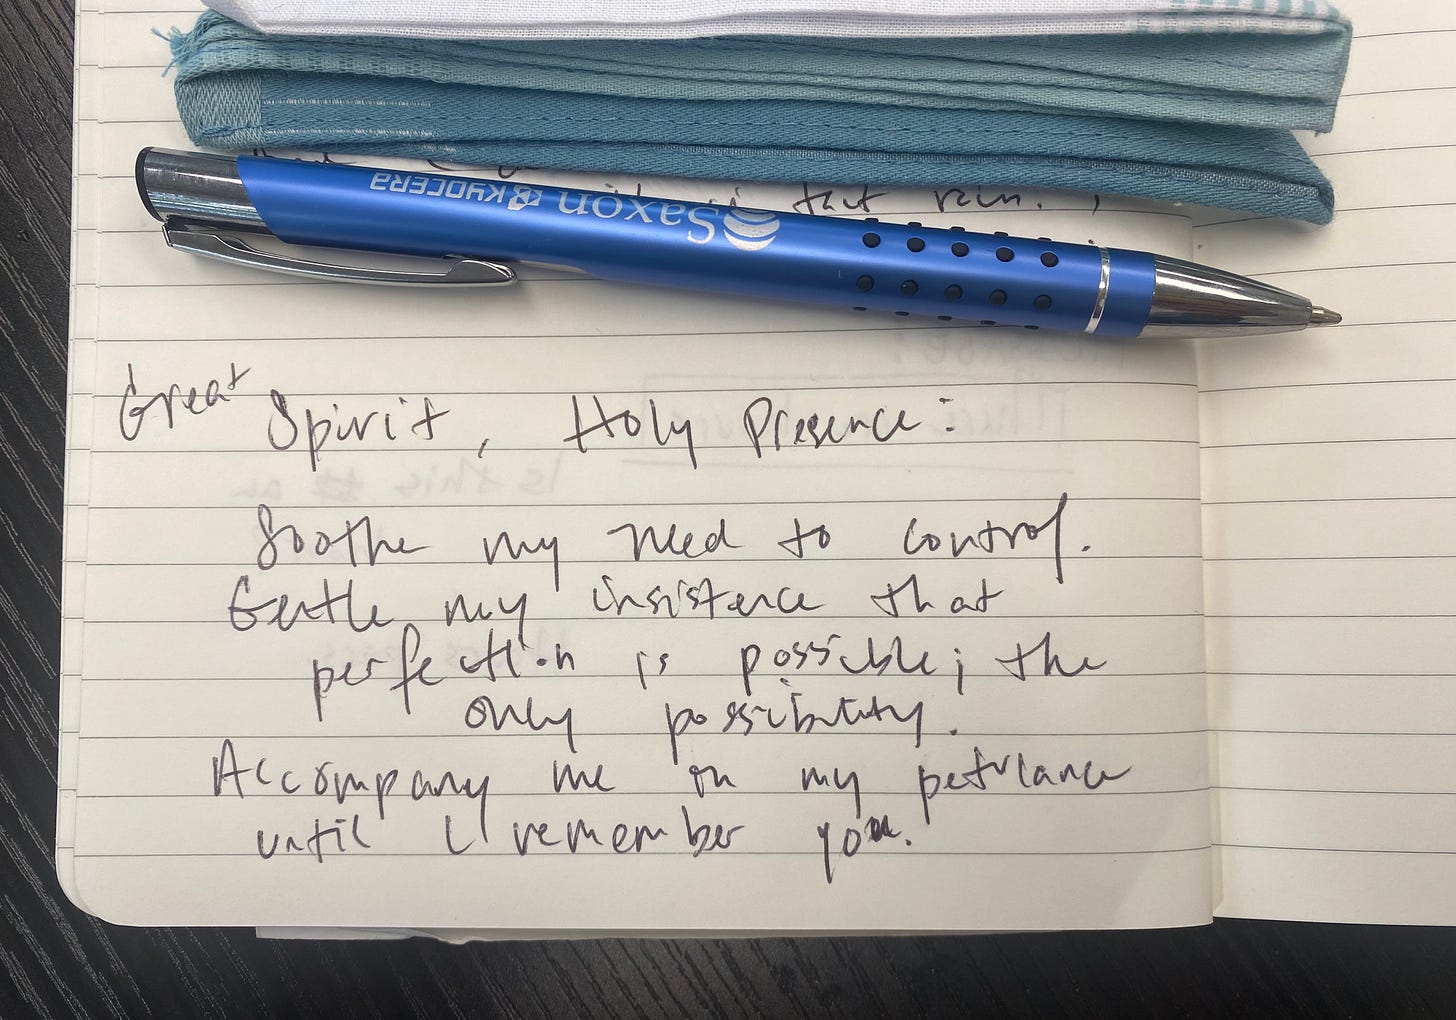 that rain.
Saxon KYOCERA
Great Spirit, Holy Presence:
Soothe my need to control.
Gentle my insistence that
perfection is possible; the
only possibility.
Accompany me in my petulance
until I remember you.
Is this